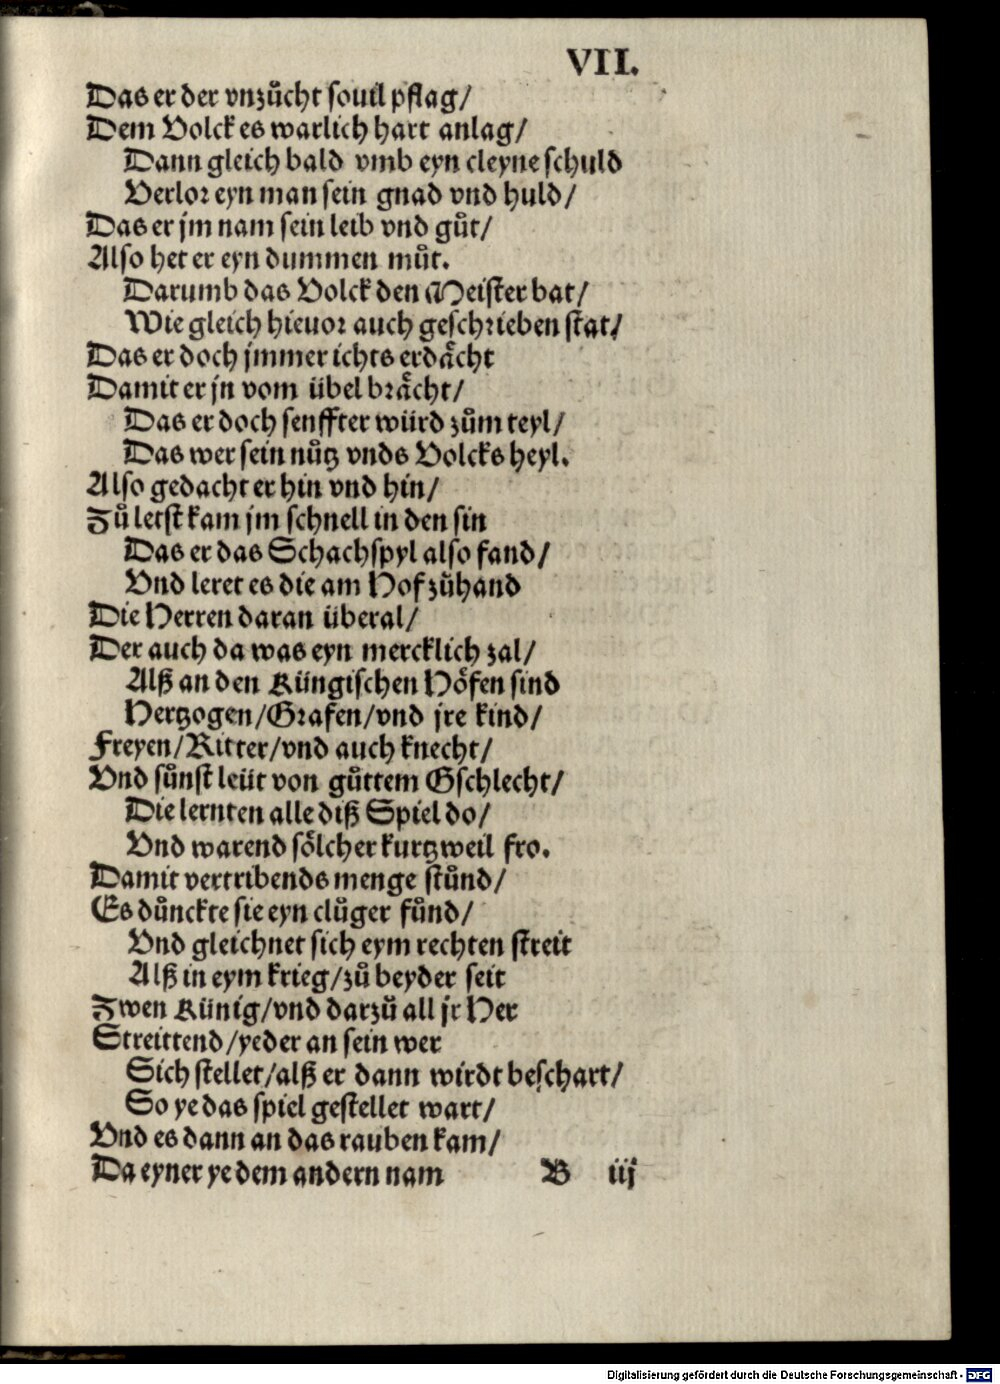 VII.
Das er der vnzůcht souil pflag/
Dem Volck es warlich hart anlag/
Dann gleich bald vmb eyn cleyne schuld
Verlor eyn man sein gnad vnd huld/
Das er jm nam sein leib vnd gůt/
Also het er eyn dummen můt.
Darumb das Volck den Meister bat/
Wie gleich hieuor auch geschrieben stat/
Das er doch jmmer ichts erdaͤcht
Damit er jn vom übel braͤcht/
Das er doch senffter würd zům teyl/
Das wer sein nůtz vnds Volcks heyl.
Also gedacht er hin vnd hin/
Zů letst kam jm schnell in den sin
Das er das Schachspyl also fand/
Vnd leret es die am Hof zůhand
Die Herren daran überal/
Der auch da was eyn mercklich zal/
Alß an den Küngischen Hoͤfen sind
Hertzogen/Grafen/vnd jre kind/
Freyen/Ritter/vnd auch knecht/
Vnd sůnst leüt von gůttem Gschlecht/
Die lernten alle diß Spiel do/
Vnd warend soͤlcher kurtzweil fro.
Damit vertribends menge stůnd/
Es důnckte sie eyn clůger fůnd/
Vnd gleichnet sich eym rechten streit
Alß in eym krieg/zů beyder seit
Zwen Künig/vnd darzů all jr Her
Streittend/yeder an sein wer
Sich stellet/alß er dann wirdt beschart/
So ye das spiel gestellet wart/
Vnd es dann an das rauben kam/
Da eyner ye dem andern nam
B iij
Digitalisierung gefördert durch die Deutsche Forschungsgemeinschaft - DFG